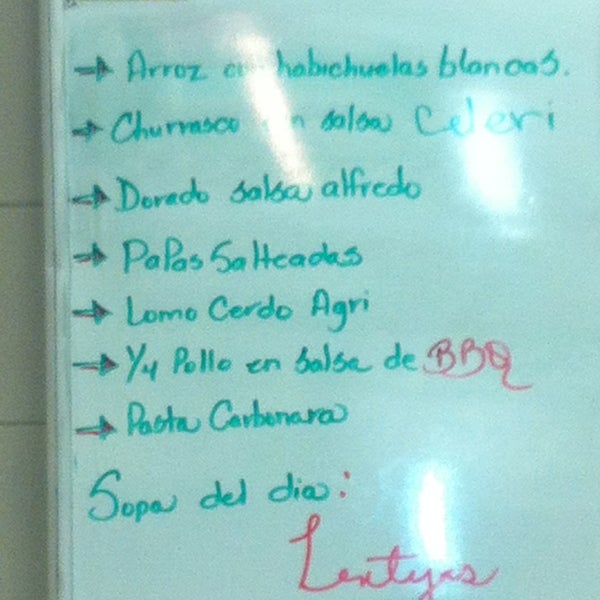 → Arroz con habichuelas blancas.
→ Churrasco en salsa Celeri
→ Dorado salsa alfredo
→ Papas Salteadas
→ Lomo Cerdo Agri
→ 1/4 Pollo en salsa de BBQ
→ Pasta Carbonara
Sopa del dia:
Lentejas